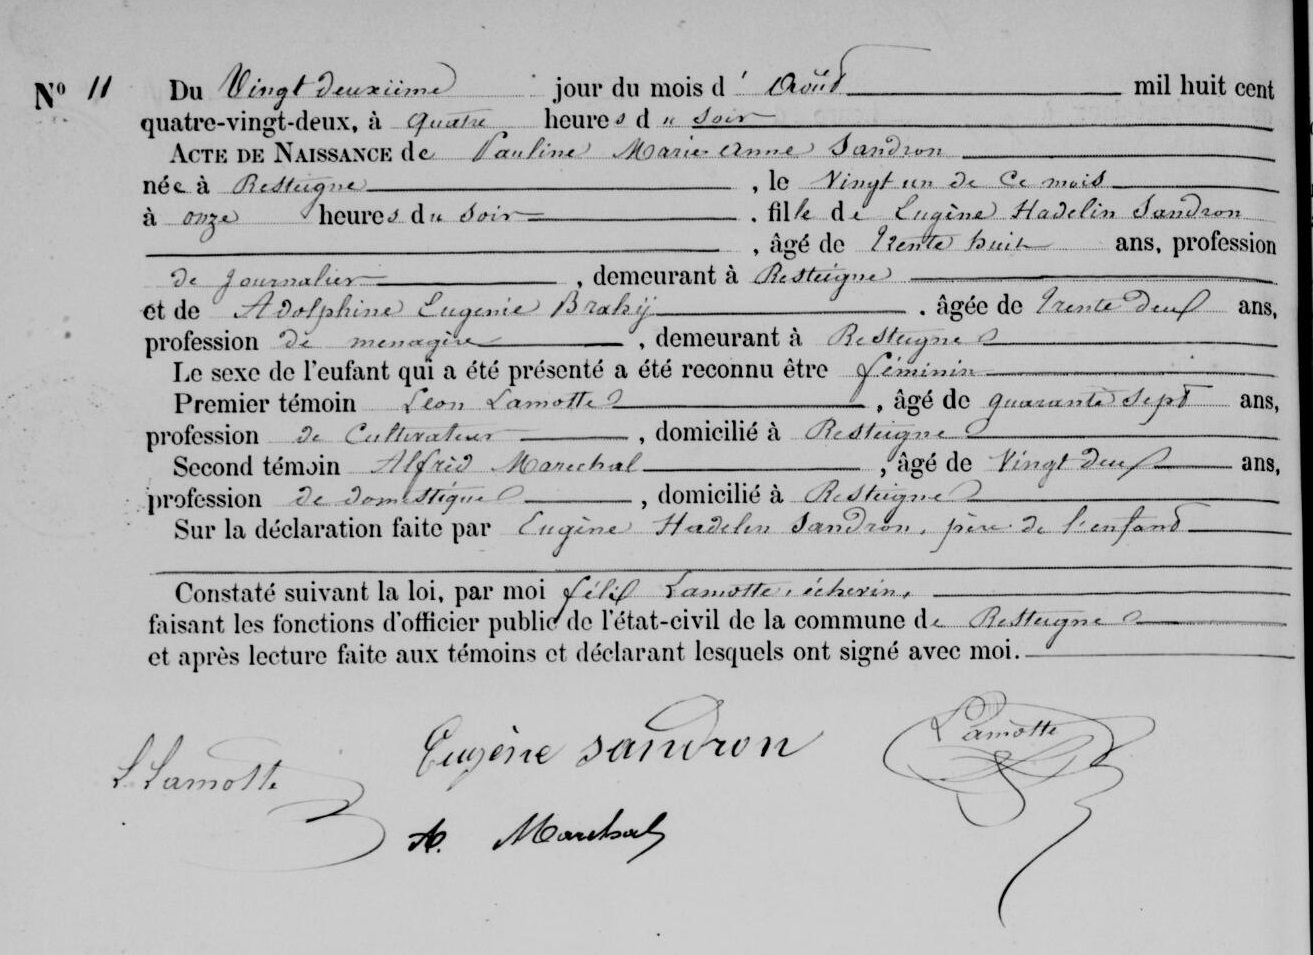 N° 11 Du Vingt deuxiime jour du mois d' Août mil huit cent
quatre-vingt-deux, à quatre heures du soir
ACTE DE NAISSANCE de Pauline Marie Anne Sandron
née à Resteigne, le Vingt un de ce mois
à onze heures du soir, fille de Eugène Hadelin Sandron
, âgé de trente huit ans, profession
de journalier, demeurant à Resteigne
et de Adolphine Eugenie Brahy, âgée de trente deux ans,
profession de menagère, demeurant à Resteigne
Le sexe de l'enfant qui a été présenté a été reconnu être féminin
Premier témoin Léon Lamotte, âgé de quarante sept ans,
profession de Cultivateur, domicilié à Resteigne
Second témoin Alfrèd Marechal, âgé de Vingt deux ans,
profession de domestique, domicilié à Resteigne
Sur la déclaration faite par Eugène Hadelin Sandron, père de l'enfant
Constaté suivant la loi, par moi félix Lamotte, échevin,
faisant les fonctions d'officier public de l'état-civil de la commune de Resteigne
et après lecture faite aux témoins et déclarant lesquels ont signé avec moi.
L Lamotte Eugène Sandron Lamotte
A. Marechal